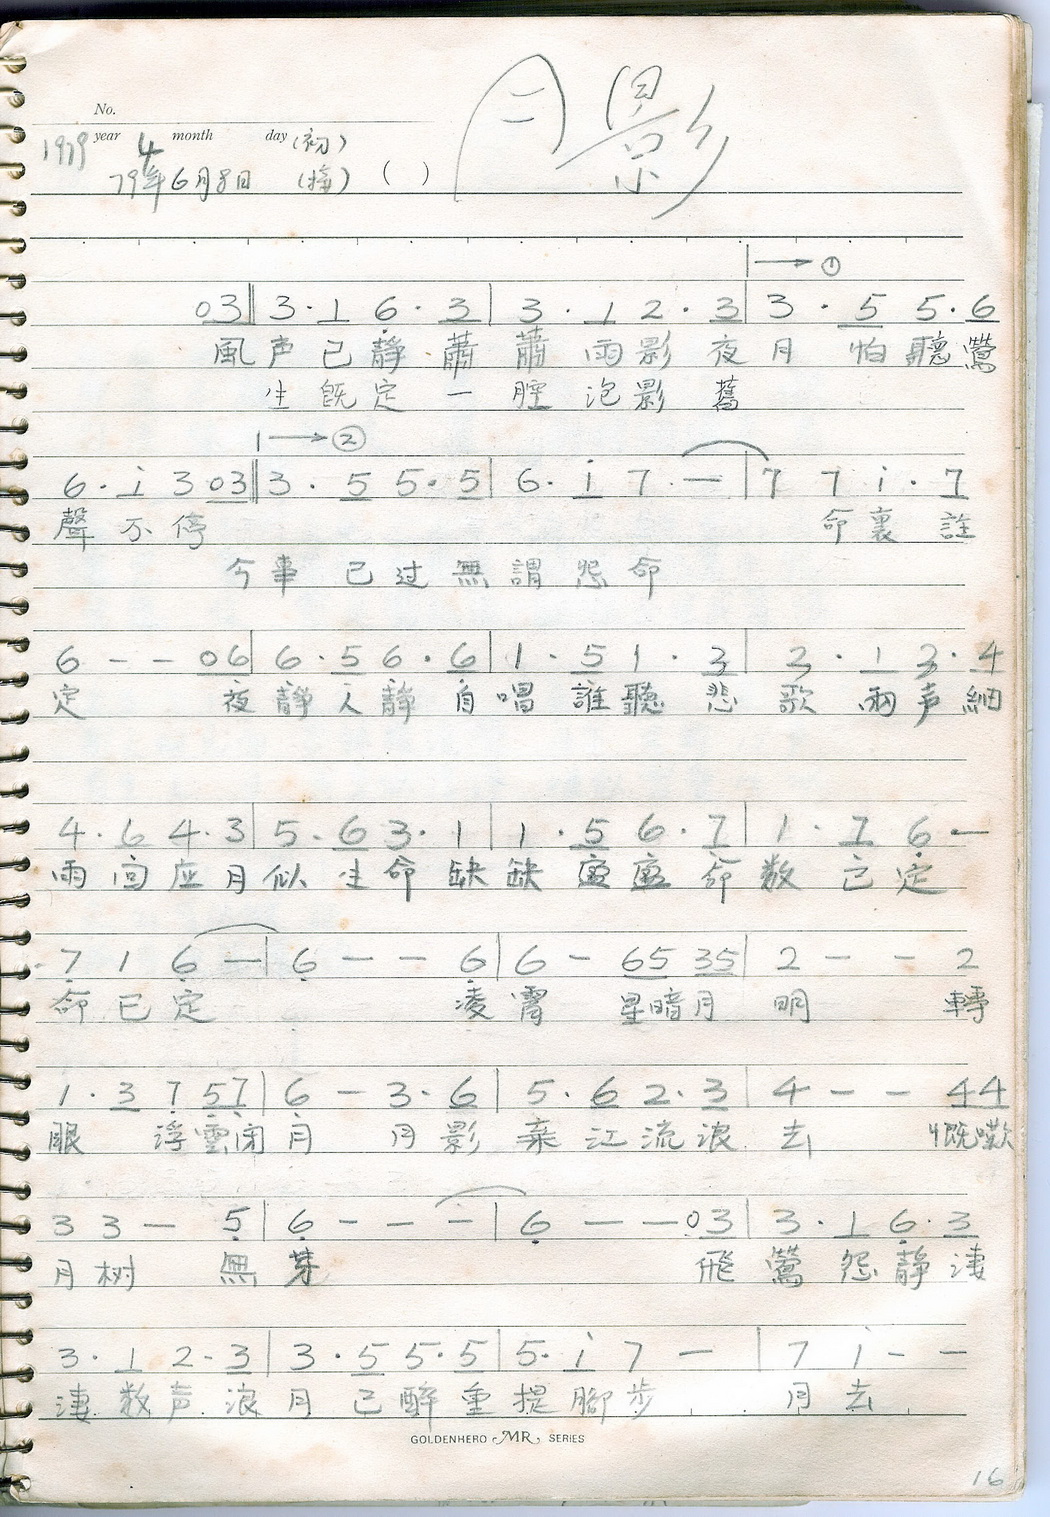 No.
月影
1979 year 4 month day (初)
79年6月8日 (接) ( )
①
03 3·1 6·3 3·1 2·3 3·5 5·6
風声已靜蕭蕭雨影夜月怕聽鶯
生既定一腔泡影舊
②
6·i 3 03 3·5 5·5 6·i 7 — 7 7 i·7
聲不停 命裏註
今事已过無謂怨命
6 - - 06 6·5 6·6 1·5 1·3 2·1 2·4
定 夜靜人靜自唱誰聽悲歌兩声細
4·6 4·3 5·6 3·1 1·5 6·7 1·7 6 —
雨向应月似生命缺缺盈盈命数已定
7 1 6 — 6 - - 6 6 - 65 35 2 - - 2
命已定 凌霄星暗月明 轉
1·3 7 57 6 - 3·6 5·6 2·3 4 - - 44
眼浮雲闭月月影棄江流浪去慨嘆
3 3 — 5 6 - - - 6 - - - 03 3·1 6·3
月树無芽 飛鶯怨靜淒
3·1 2·3 3·5 5·5 5·i 7 — 7 i - -
淒数声浪月已醉重提腳步月去
GOLDENHERO MR SERIES
16